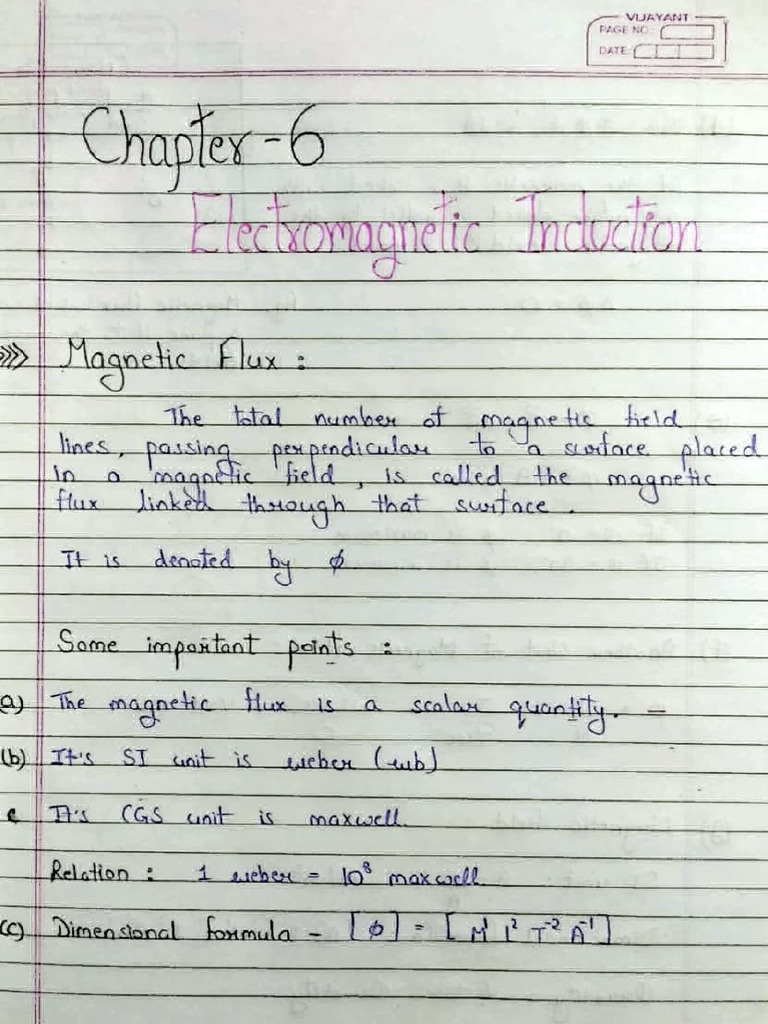 VIJAYANT
PAGE NO.:
DATE:
Chapter-6
Electromagnetic Induction
Magnetic Flux :
The total number of magnetic field
lines, passing perpendicular to a surface placed
in a magnetic field, is called the magnetic
flux linked through that surface.
It is denoted by ϕ
Some important points :
(a) The magnetic flux is a scalar quantity. -
(b) It's SI unit is weber (wb)
It's CGS unit is maxwell.
Relation : 1 weber = 10⁸ maxwell.
(c) Dimensional formula - [ϕ] = [M¹ L² T⁻² A⁻¹]